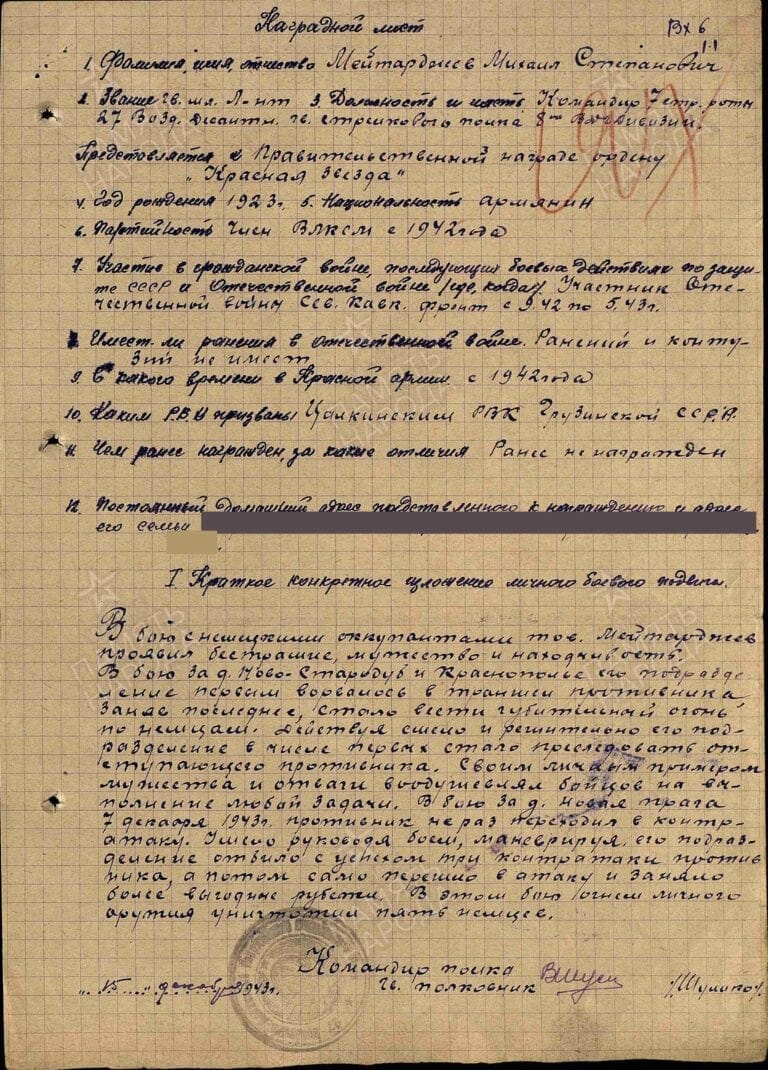 Наградной лист
Вх 6
1. Фамилия, имя, отчество Мейтарджев Михаил Степанович
2. Звание гв. мл. Л-нт 3. Должность и часть Командир 7 стр. роты
27 Возд. Десантн. гв. стрелкового полка 8ой Вдгв Дивизии.
Представляется к Правительственной награде ордену
"Красная Звезда"
4. Год рождения 1923г. 5. Национальность армянин
6. Партийность Член ВЛКСМ с 1942 года
7. Участие в гражданской войне, последующих боевых действиях по защи-
те СССР и Отечественной войне /где, когда/ Участник Оте-
чественной войны Сев. Кавк. фронт с 9.42 по 5.43г.
8. Имеет ли ранения в отечественной войне. Ранений и конту-
зий не имеет
9. С какого времени в Красной армии с 1942 года
10. Каким Р.В.К призваны Цалкинским РВК Грузинской ССР.
11. Чем ранее награжден, за какие отличия Ранее не награжден
12. Постоянный домашний адрес представленного к награждению и адрес
его семьи
I. Краткое конкретное изложение личного боевого подвига.
В бою с немецкими оккупантами тов. Мейтарджев
проявил бестрашие, мужество и находчивость.
В бою за д. Ново-Стародуб и Краснополье его подразде
ление первым ворвалось в траншеи противника
Заняв последнее, стало вести губительный огонь
по немцам. Действуя смело и решительно его под-
разделение в числе первых стало преследовать от-
ступающего противника. Своим личным примером
мужества и отваги воодушевлял бойцов на вы-
полнение любой задачи. В бою за д. Новая Прага
7 декабря 1943г. противник не раз переходил в контр-
атаку. Умело руководя боем, маневрируя, его подраз-
деление отбило с успехом три контратаки против
ника, а потом само перешло в атаку и заняло
более выгодные рубежи. В этом бою огнем личного
оружия уничтожил пять немцев.
Командир полка
гв. полковник /Шумило/.
"15" декабря 1943г.